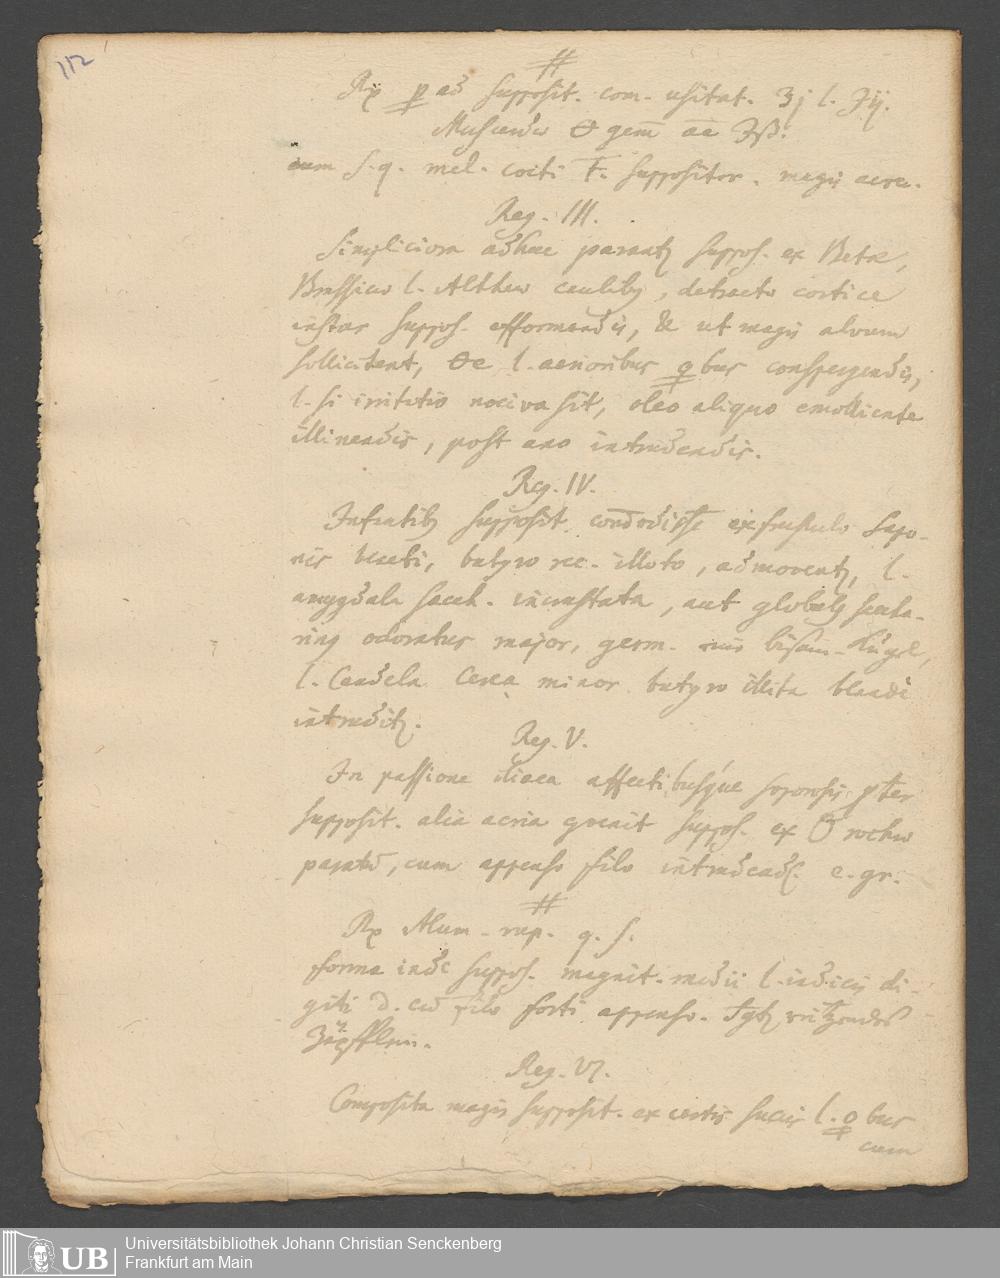 112
#
Rx p ad supposit. com. usitat. ʒj l. ʒij.
Muscerdæ gem̄ aa ʒß.
cum s. q. mel. cocti F. suppositor. magis acre.
Reg. III.
Simpliciora adhuc parant suppos. ex Betæ,
Brassicæ l. Altheæ caulibꝫ, detracto cortice
instar suppos. efformandis, & ut magis alvum
sollicitent, l. acrioribus bus conspergendis,
l. si irritatio nociva sit, oleo aliquo emolliente
illinendis, post ano intrudendis.
Reg. IV.
Infantibꝫ supposit. ex frustulo sapo-
nis veneti, butyro rec. illito, admovent, l.
amygdala sacch. incrustata, aut globulꝫ saccha-
rinꝫ odoratus major, germ. ein bisam-Kügel,
l. Candela Cerea minor butyro illita blande
intrudit.
Reg. V.
In passione iliaca affectibusque soporosis pter
supposit. alia acria qvenit suppos. ex O rochæ
paratū, cum appenso filo intrudend. e. gr.
#
Rx Alum. rup. q. s.
forma inde suppos. magnit. medii l. indicis di-
giti d. cū filo forti appenso. Sgt
Zäpfflein.
Reg. VI.
Composita magis supposit. ex certis succis l. bus
cum
UB Universitätsbibliothek Johann Christian Senckenberg
Frankfurt am Main